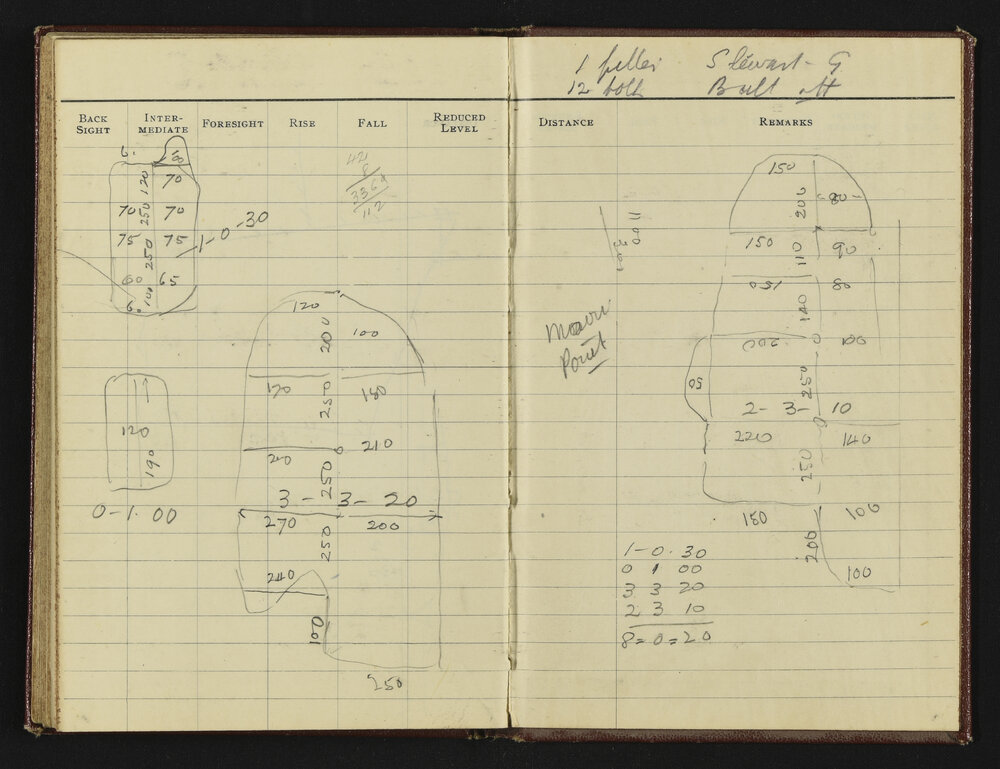 BACK SIGHT
INTER-MEDIATE
FORESIGHT
RISE
FALL
REDUCED LEVEL
6.
100
120 70
70 250 70
75 250 75
1-0-30
60 65
6. 100
44
8
3364
112
120
200 100
170 250 180
210
250
3 - 3 - 20
270 200
250
240
100
250
120
190
0-1.00
1
12
Stewart - G
Bull
DISTANCE
REMARKS
1100
Point
150
200 80
150 110 90
150 80
140
200
50 250
2- 3- 10
220 140
250
180 100
200
100
1-0.30
0 1 00
3 3 20
2 3 10
8=0=20